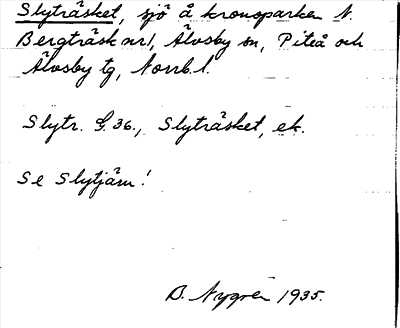 Slyträsket, sjö å kronoparken N.
Bergträsk nr1, Älvsby sn, Piteå och
Älvsby tg, Norrb.l.
Slytr. G.36., Slyträsket, ek.
Se Slytjärn!
B. Nygren 1935.